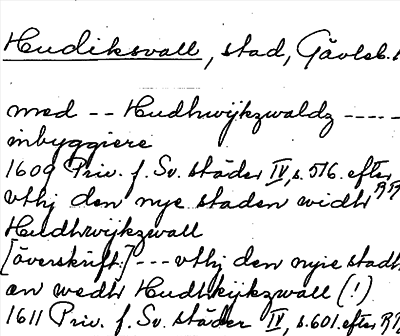 Hudiksvall, stad, Gävleb. l
med -- Hudhwijkzwaldz -----
inbyggiere
1609 Priv. f. Sv. städer IV, s. 576. efter RR
vthj den nye staden widh
Hudhwijkzwall
[överskrift:] --- vthj den nyie stadh
an wedh Hudhkijkzwall (!).
1611 Priv. f. Sv. städer IV s. 601. efter RR